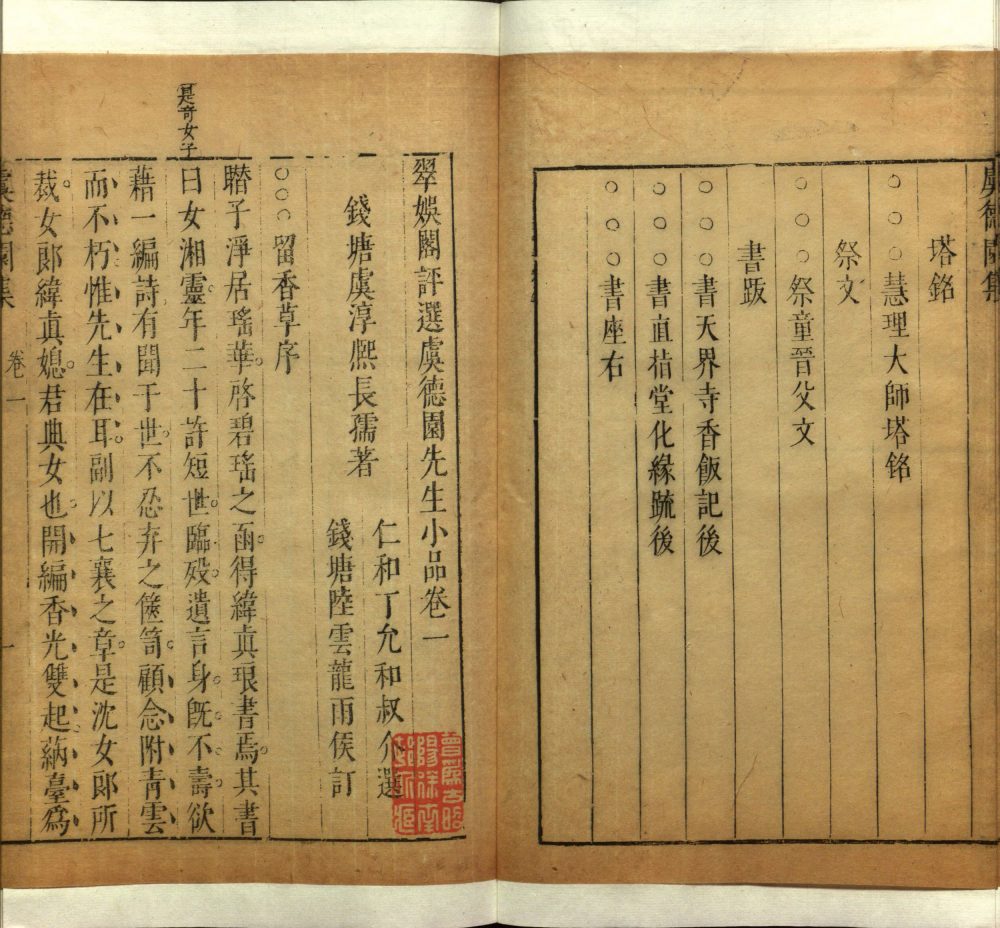 虞德園集
塔銘
○○○慧理大師塔銘
祭文
○○○祭童晉父文
書跋
○○○書天界寺香飯記後
○○○書直指堂化緣疏後
○○○書座右
翠娛閣評選虞德園先生小品卷一
錢塘虞淳熈長孺著
仁和丁允和叔介選
錢塘陸雲龍雨侯訂
○○○留香草序
瞽子淨居瑤華。啓碧瑤之函。得緯眞琅書焉。其書
曰女湘靈。年二十許短世。臨歿。遺言身。旣不壽。欲
藉一編詩有聞于世。不忍弃之篋笥。顧念附青雲
而不朽惟先生在耳。副以七襄之章。是沈女郎所
裁。女郎緯眞媳。君典女也。開編香光雙起。蒳臺爲
是奇女子
虞德園集
卷一
一